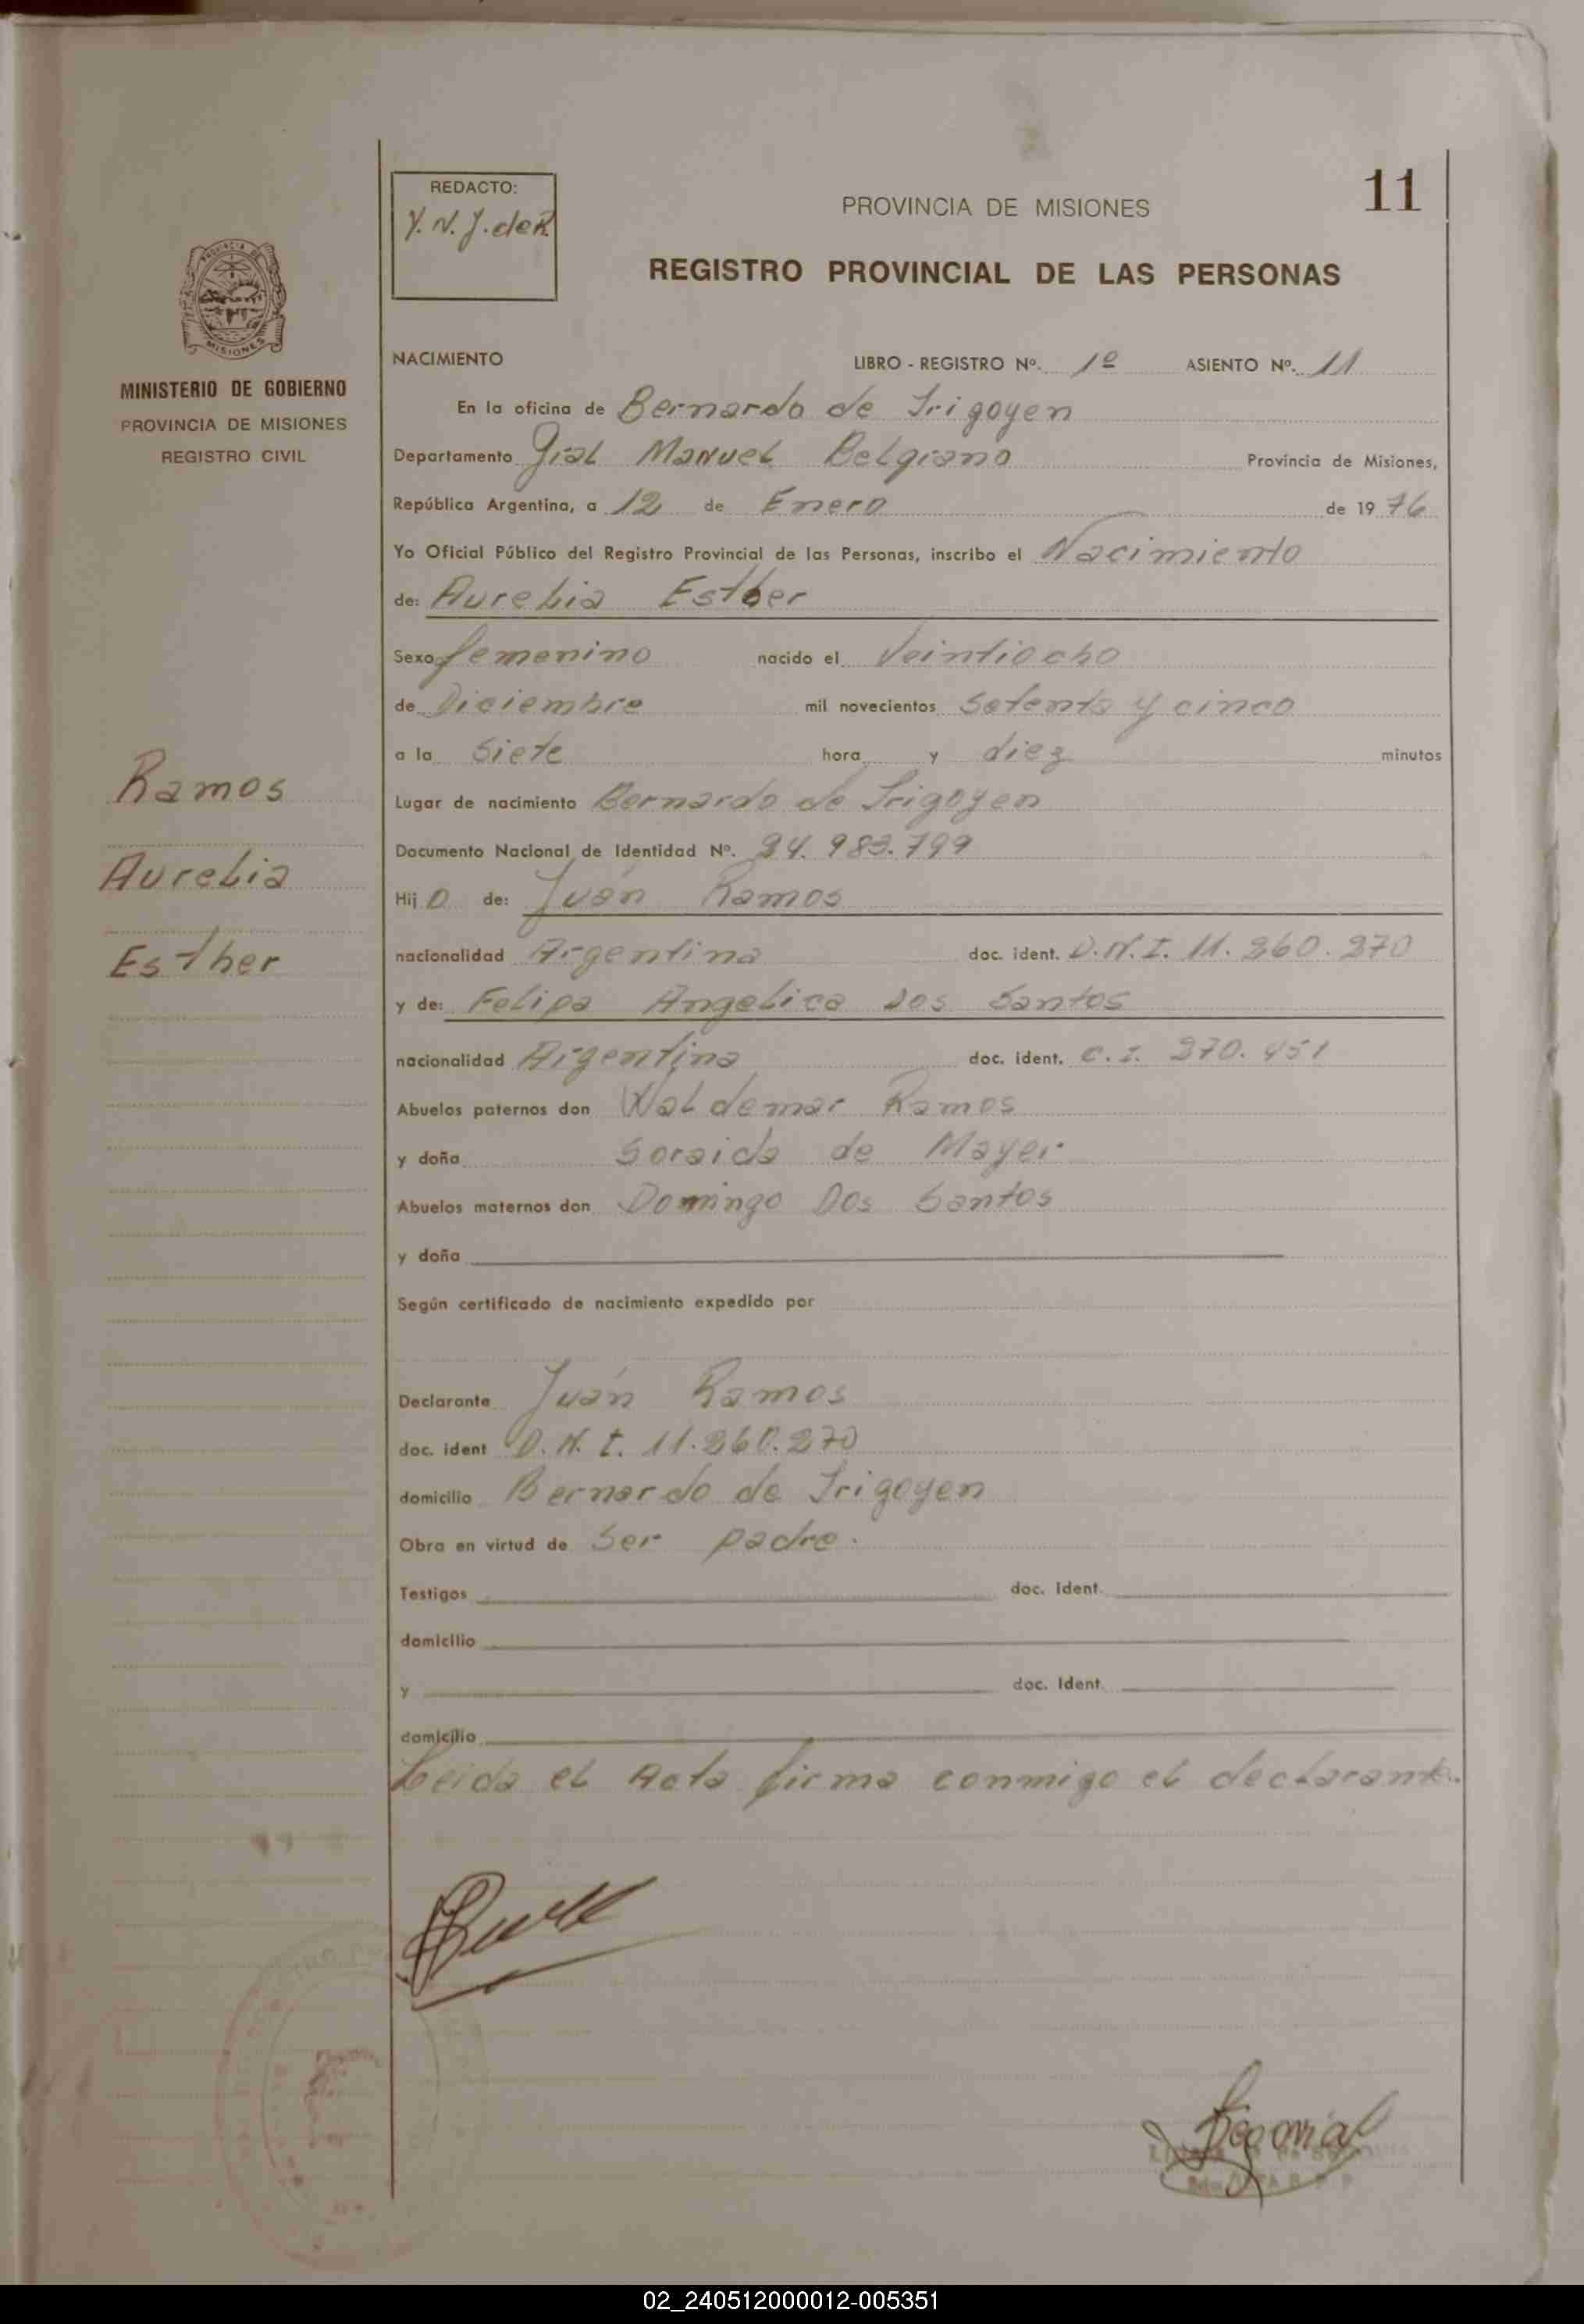 REDACTO:
Y. N. J. de R.
PROVINCIA DE MISIONES
11
REGISTRO PROVINCIAL DE LAS PERSONAS
MISIONES
MINISTERIO DE GOBIERNO
PROVINCIA DE MISIONES
REGISTRO CIVIL
Ramos
Aurelia
Esther
NACIMIENTO LIBRO - REGISTRO Nº. 1º ASIENTO Nº. 11
En la oficina de Bernardo de Irigoyen
Departamento Gral Manuel Belgrano Provincia de Misiones,
República Argentina, a 12 de Enero de 1976
Yo Oficial Público del Registro Provincial de las Personas, inscribo el Nacimiento
de: Aurelia Esther
Sexo femenino nacido el Veintiocho
de Diciembre mil novecientos setenta y cinco
a la siete hora y diez minutos
Lugar de nacimiento Bernardo de Irigoyen
Documento Nacional de Identidad Nº.
Hij de: Juán Ramos
nacionalidad Argentina doc. ident. D.N.I.
y de: Felipa Angelica dos Santos
nacionalidad Argentina doc. ident. C. I.
Abuelos paternos don Waldemar Ramos
y doña Soraida de Mayer
Abuelos maternos don Domingo Dos Santos
y doña
Según certificado de nacimiento expedido por
Declarante Juán Ramos
doc. ident D.N.I.
domicilio Bernardo de Irigoyen
Obra en virtud de ser padre.
Testigos doc. ident.
domicilio
y doc. ident.
domicilio
Leida el Acta firma conmigo el declarante.
02_240512000012-005351